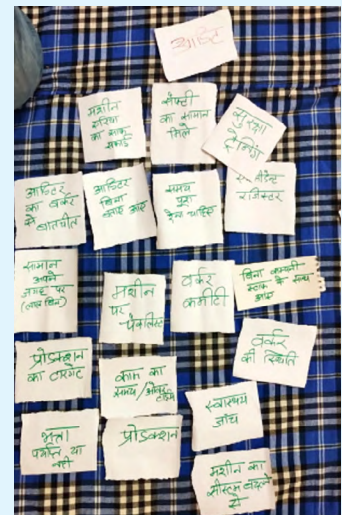 आडिट
मशीन
एरिया
का साफ
सफाई
सेफ्टी
का सामान
मिले
सुरक्षा
ट्रेनिंग
आडिटर
का वर्कर
से बातचीत
आडिटर
बिना
बताए आए
समय
पुरा
देना चाहिए
रजिस्टर
सामान
अपने
जगह पर
(लाल बिन)
मशीन
पर
चेकलिस्ट
वर्कर
कमेटी
बिना कम्पनी
स्टाफ के साथ
आए
प्रोडक्शन
का टारगेट
काम का
समय/ओवर
टाइम
वर्कर
की स्थिति
भत्ता
पर्याप्त या
नही
प्रोडक्शन
स्वास्थय
जाँच
मशीन का
सीस्टम बदलने
से